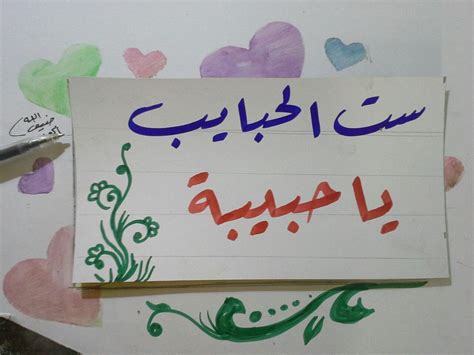 ست الحبايب
يا حبيبة